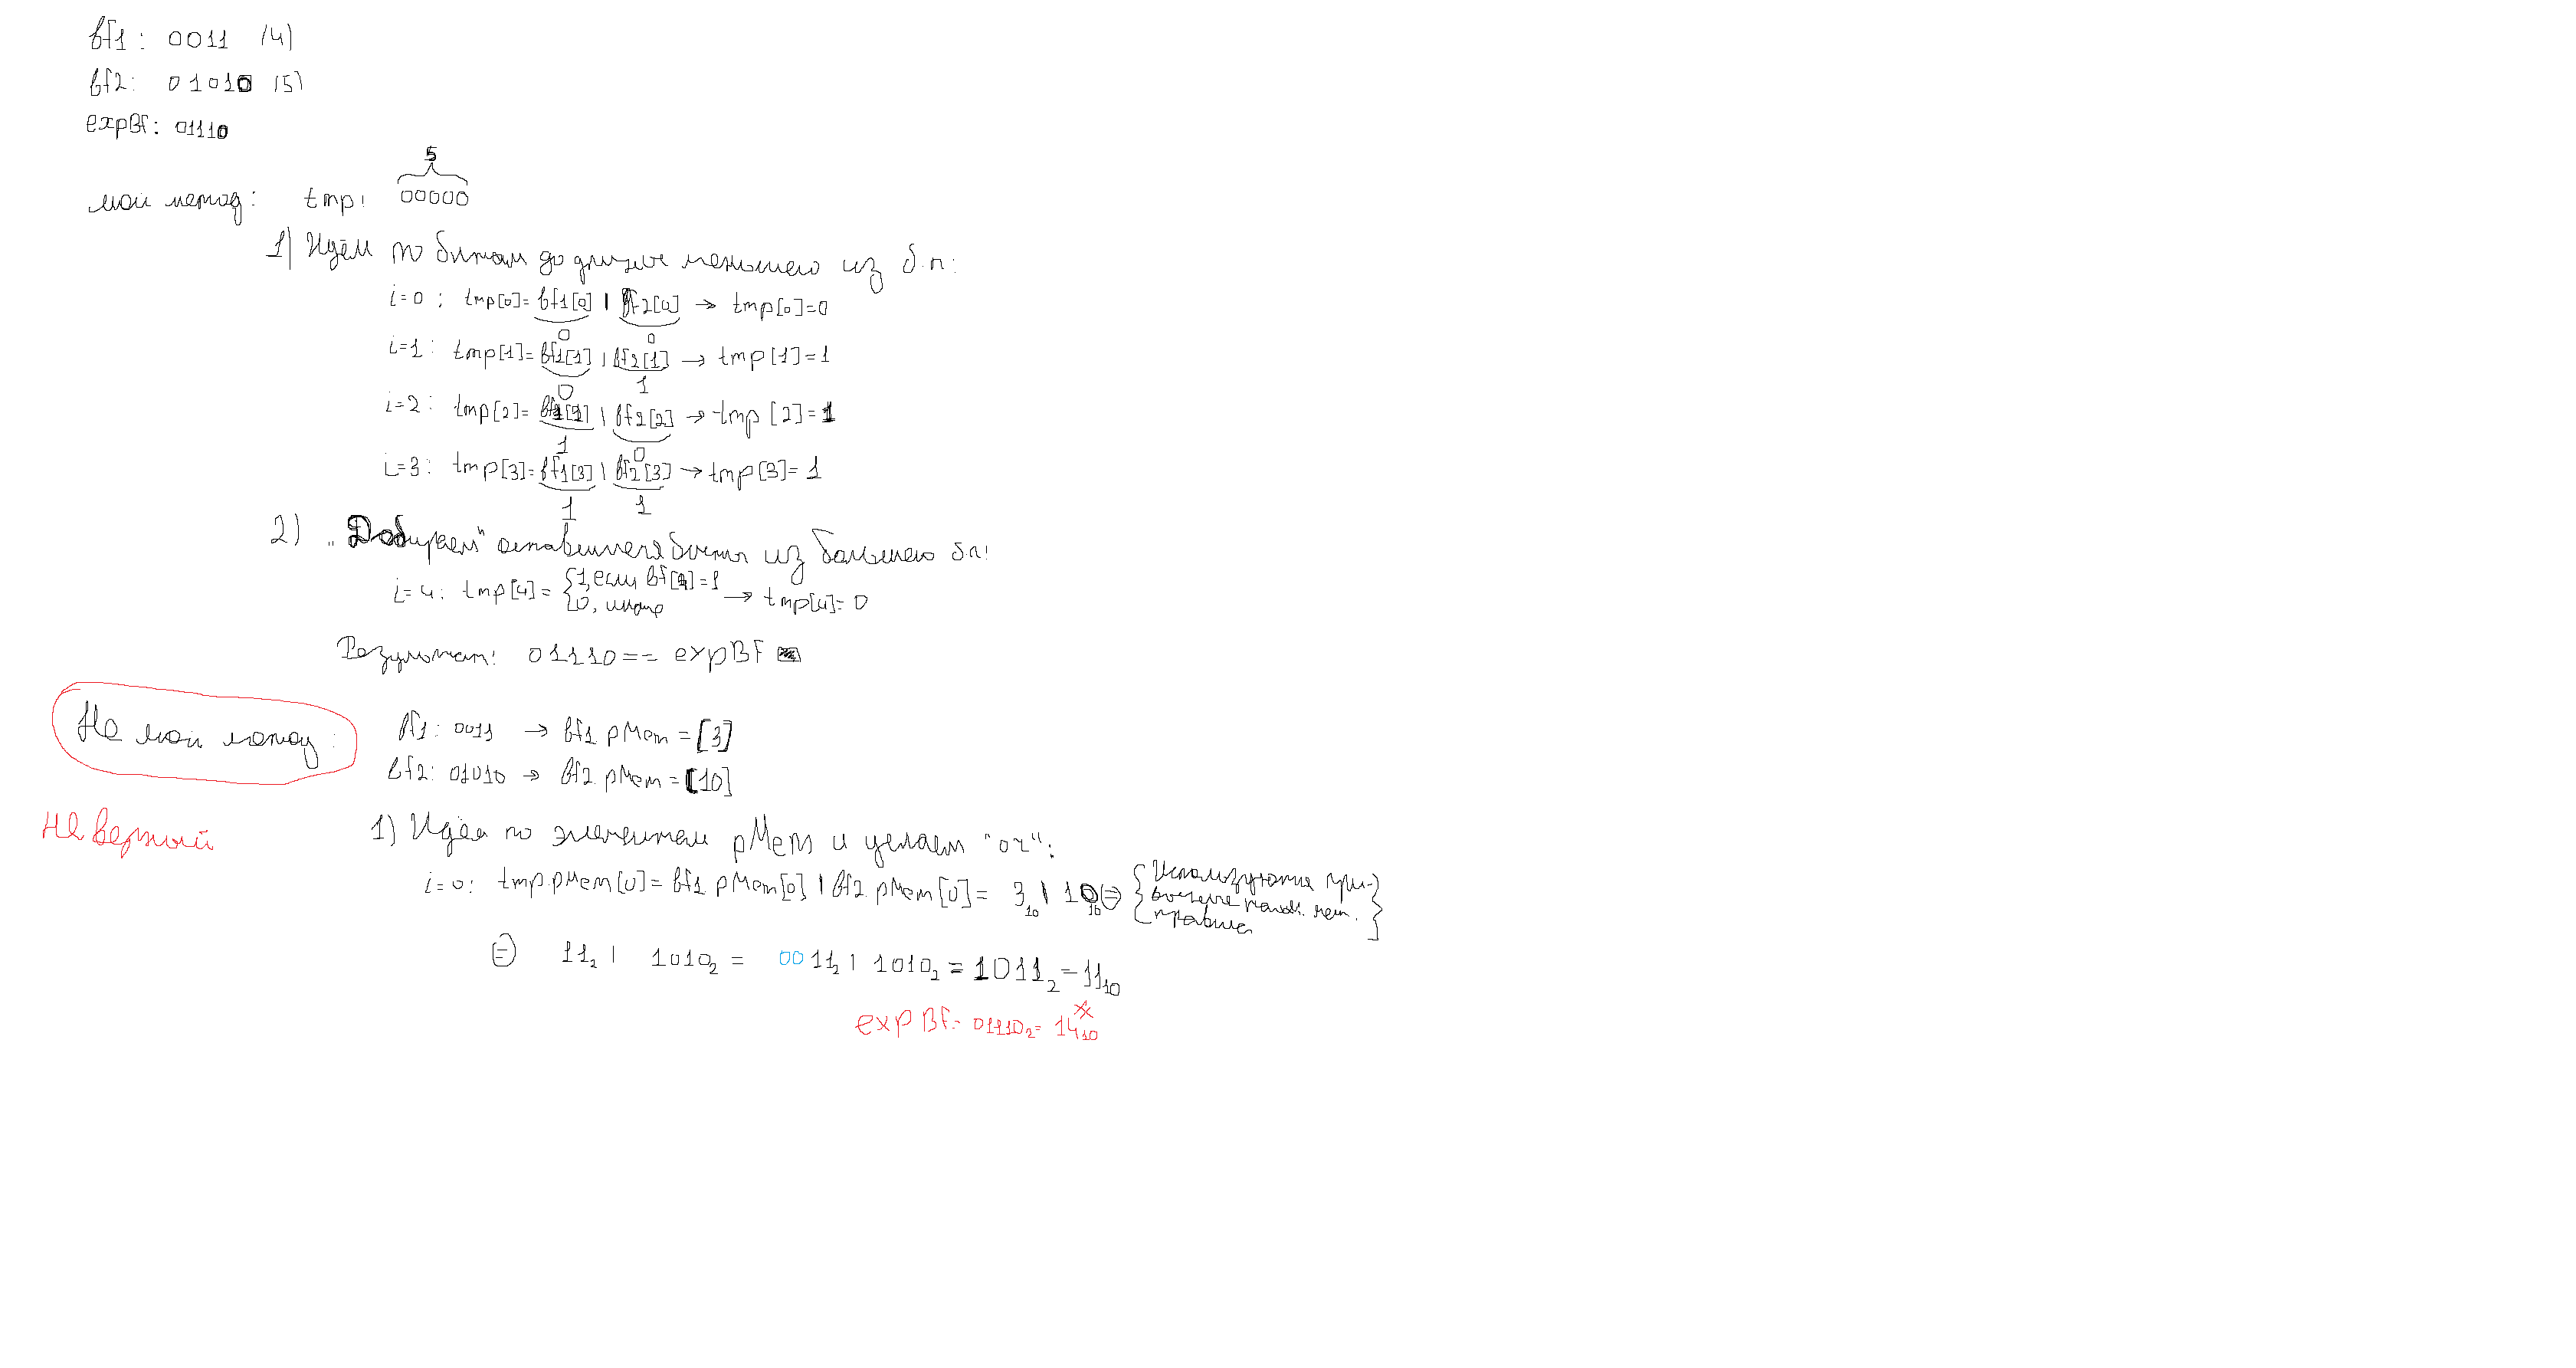 bf1: 0011 (4)
bf2: 01010 (5)
expBf: 01110
5
мой метод: tmp: 00000
1) Идём по битам до длины меньшего из б.п:
i=0: tmp[0]=bf1[0] | bf2[0] → tmp[0]=0
0 0
i=1: tmp[1]=bf1[1] | bf2[1] → tmp[1]=1
0 1
i=2: tmp[2]=bf1[2] | bf2[2] → tmp[2]=1
1 0
i=3: tmp[3]=bf1[3] | bf2[3] → tmp[3]=1
1 1
2) „Добираем" оставшиеся биты из большего б.п:
i=4: tmp[4]= { 1, если bf[4]=1
0, иначе → tmp[4]=0
Результат: 01110 == expBF
Не мой метод: bf1: 0011 → bf1.pMem = [3]
bf2: 01010 → bf2.pMem = [10]
Не верный
1) Идём по элементам pMem и делаем "or":
i=0: tmp.pMem[0]= bf1.pMem[0] | bf2.pMem[0]= 3₁₀ | 10₁₀ ⊜ { Используются при-
правила }
⊜ 11₂ | 1010₂ = 0011₂ | 1010₂ = 1011₂ = 11₁₀
expBF= 01110₂= 14₁₀